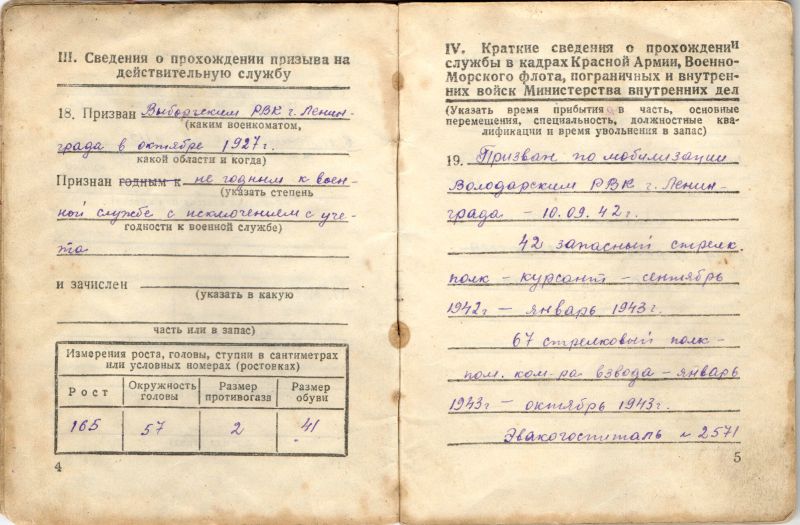 III. Сведения о прохождении призыва на
действительную службу
18. Призван Выборгским РВК г. Ленин-
(каким военкоматом,
града в октябре 1927 г.
какой области и когда)
Признан годным к не годным к воен-
(указать степень
ной службе с исключением с уче-
годности к военной службе)
та
и зачислен
(указать в какую
часть или в запас)
Измерения роста, головы, ступни в сантиметрах
или условных номерах (ростовках)
Рост Окружность головы Размер противогаза Размер обуви
165 57 2 41
4
IV. Краткие сведения о прохождении
службы в кадрах Красной Армии, Военно-
Морского флота, пограничных и внутрен-
них войск Министерства внутренних дел
(Указать время прибытия в часть, основные
перемещения, специальность, должностные ква-
лификации и время увольнения в запас)
19. Призван по мобилизации
Володарским РВК г. Ленин-
града – 10.09.42 г.
42 запасный стрелк.
полк – курсант – сентябрь
1942 г – январь 1943 г.
67 стрелковый полк –
пом. ком-ра взвода – январь
1943 г – октябрь 1943 г.
Эвакогоспиталь № 2571
5